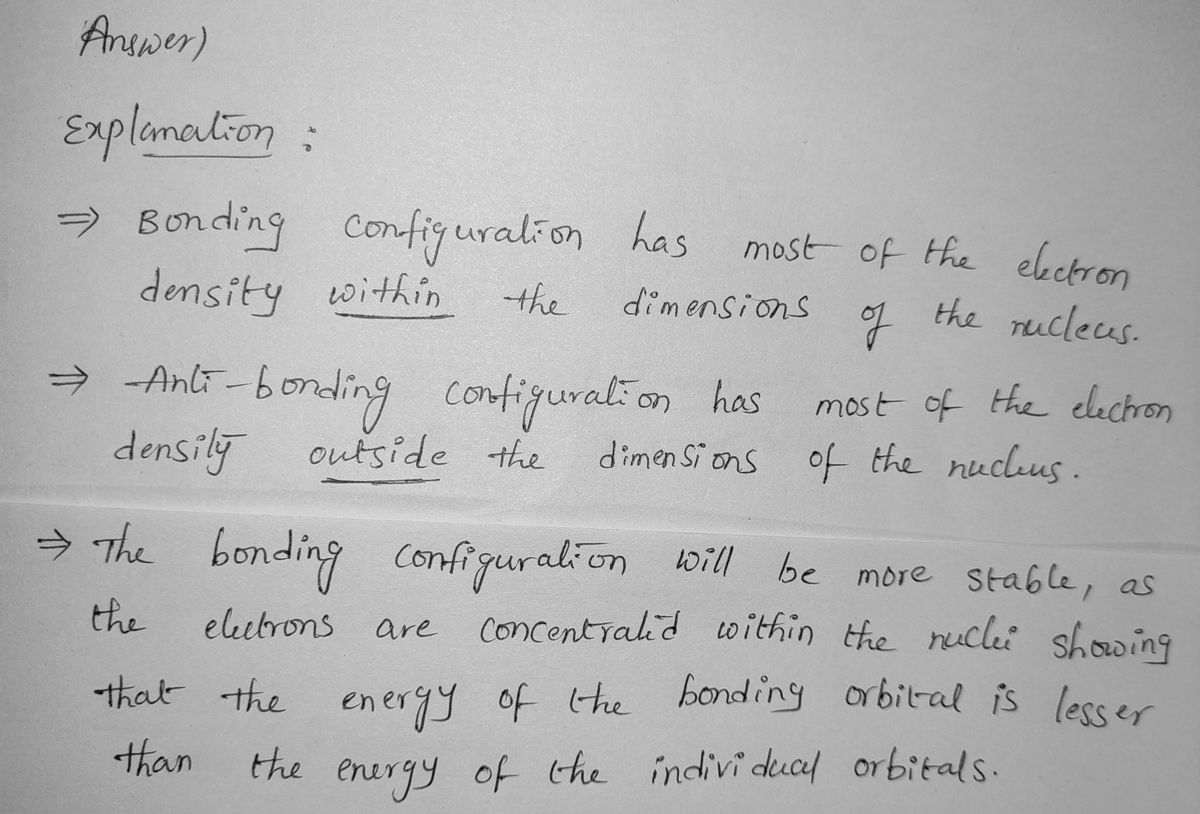 Answer)
Explanation :
⇒ Bonding configuration has most of the electron
density within the dimensions of the nucleus.
⇒ Anti-bonding configuration has most of the electron
density outside the dimensions of the nucleus.
⇒ The bonding configuration will be more stable, as
the electrons are concentrated within the nuclei showing
that the energy of the bonding orbital is lesser
than the energy of the individual orbitals.